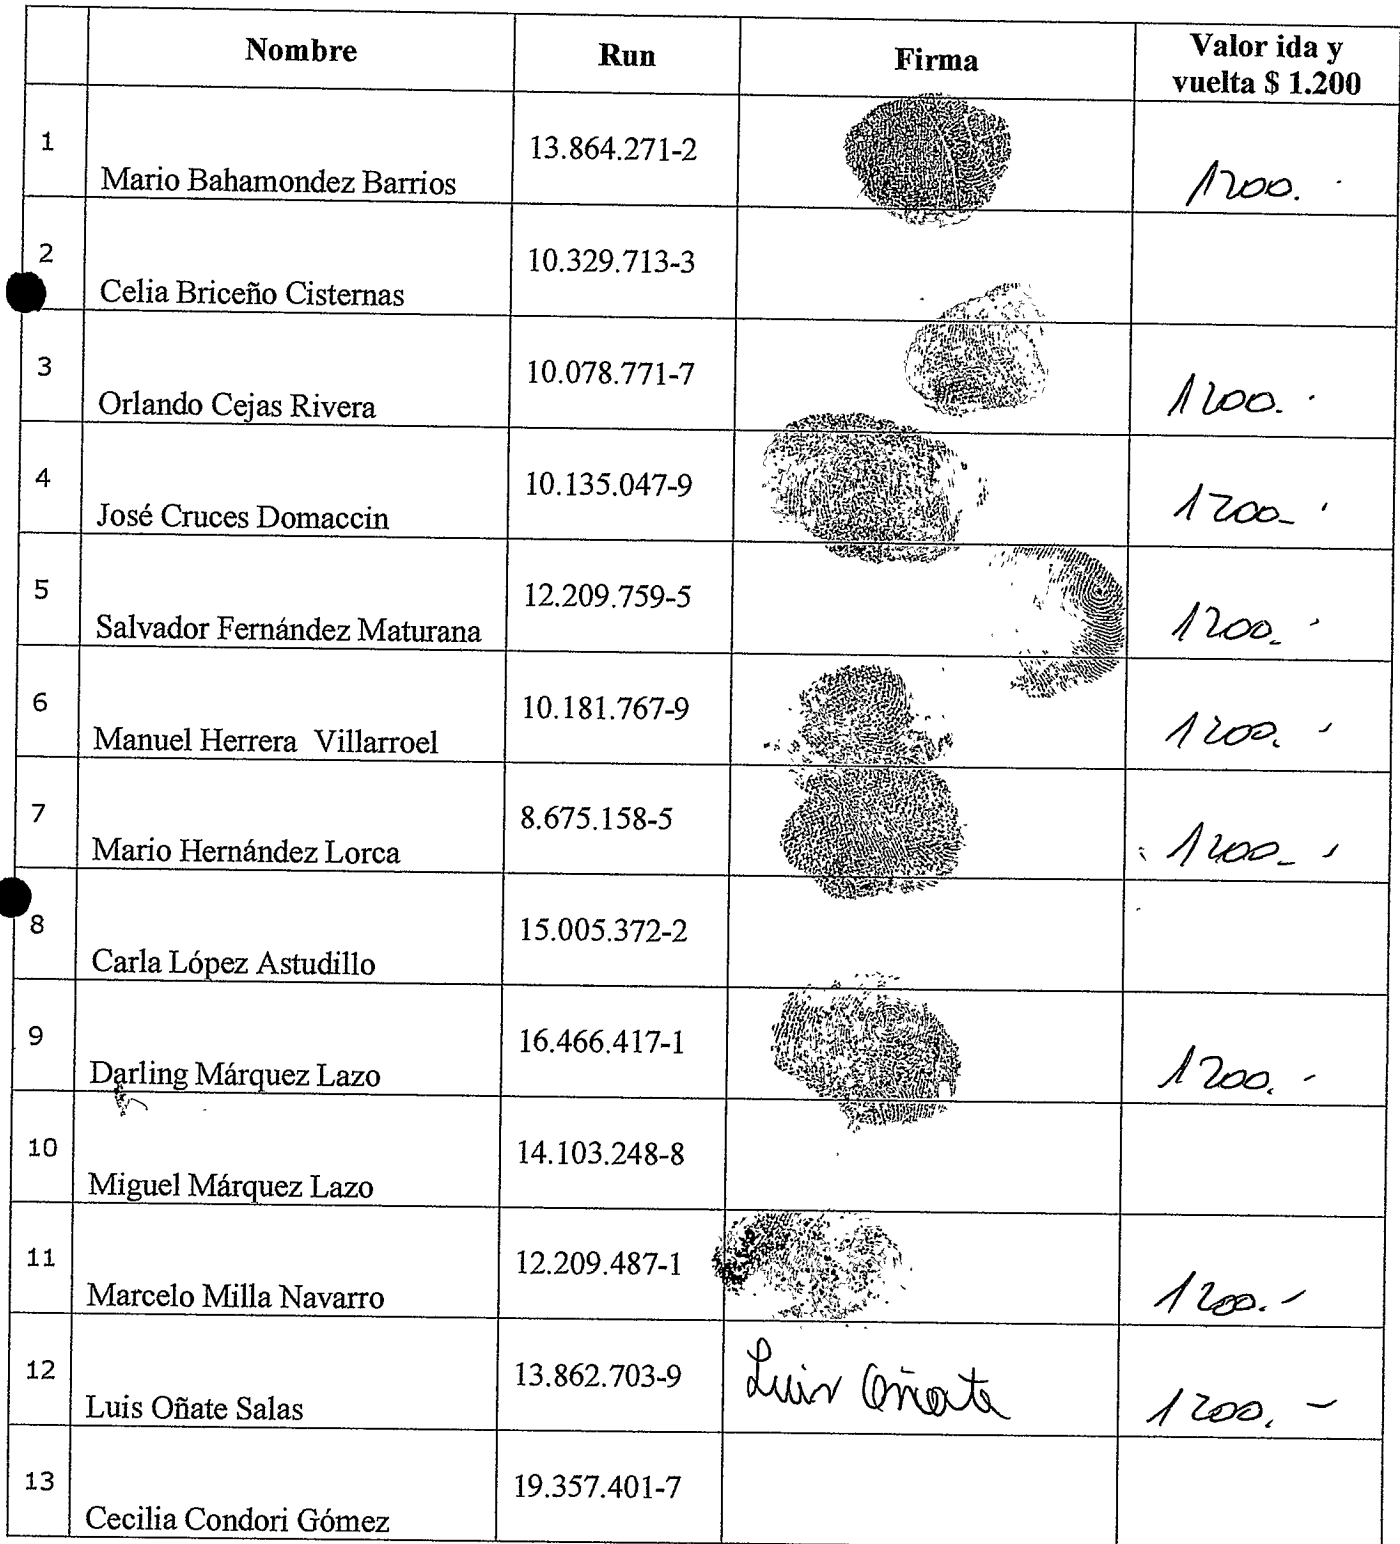 Nombre Run Firma Valor ida y
vuelta $ 1.200
1 Mario Bahamondez Barrios 13.864.271-2 1200.
2 Celia Briceño Cisternas 10.329.713-3
3 Orlando Cejas Rivera 10.078.771-7 1200.
4 José Cruces Domaccin 10.135.047-9 1200-
5 Salvador Fernández Maturana 12.209.759-5 1200.
6 Manuel Herrera Villarroel 10.181.767-9 1200.
7 Mario Hernández Lorca 8.675.158-5 1200-
8 Carla López Astudillo 15.005.372-2
9 Darling Márquez Lazo 16.466.417-1 1200.-
10 Miguel Márquez Lazo 14.103.248-8
11 Marcelo Milla Navarro 12.209.487-1 1200.-
12 Luis Oñate Salas 13.862.703-9 Luis Oñate 1200.-
13 Cecilia Condori Gómez 19.357.401-7